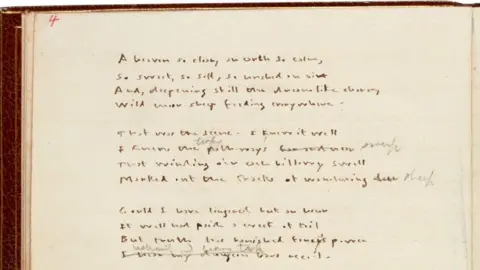 4
A heaven so clear, an earth so calm,
So sweet, so soft, so hushed an air
And, deepening still the dreamlike charm,
Wild moor sheep feeding everywhere -
That was the scene - I knew it well
turfy
I knew the path-ways far and near sweep
That winding o'er each billowy swell
Marked out the tracks of wandering deer sheep
Could I have lingered but an hour
It well had paid a week of toil
But truth has banished fancy's power
heavy task
I hear my dungeon bars recoil.